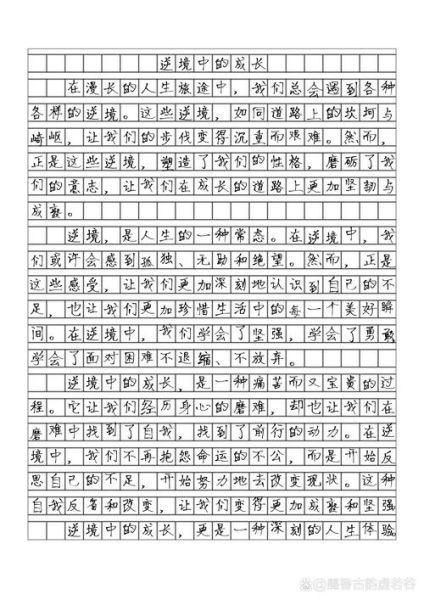 逆境中的成长
在漫长的人生旅途中，我们总会遇到各种
各样的逆境。这些逆境，如同道路上的坎坷与
崎岖，让我们的步伐变得沉重而艰难。然而，
正是这些逆境，塑造了我们的性格，磨砺了我
们的意志，让我们在成长的道路上更加坚韧与
成熟。
逆境，是人生的一种常态。在逆境中，我
们或许会感到孤独、无助和绝望。然而，正是
这些感受，让我们更加深刻地认识到自己的不
足，也让我们更加珍惜生活中的每一个美好瞬
间。在逆境中，我们学会了坚强，学会了勇敢
学会了面对困难不退缩、不放弃。
逆境中的成长，是一种痛苦而又宝贵的过
程。它让我们经历身心的磨难，却也让我们在
磨难中找到了自我，找到了前行的动力。在逆
境中，我们不再抱怨命运的不公，而是开始反
思自己的不足，开始努力地去改变现状。这种
自我反省和改变，让我们变得更加成熟和坚强
逆境中的成长，更是一种深刻的人生体验
@魏晋古韵虚若谷